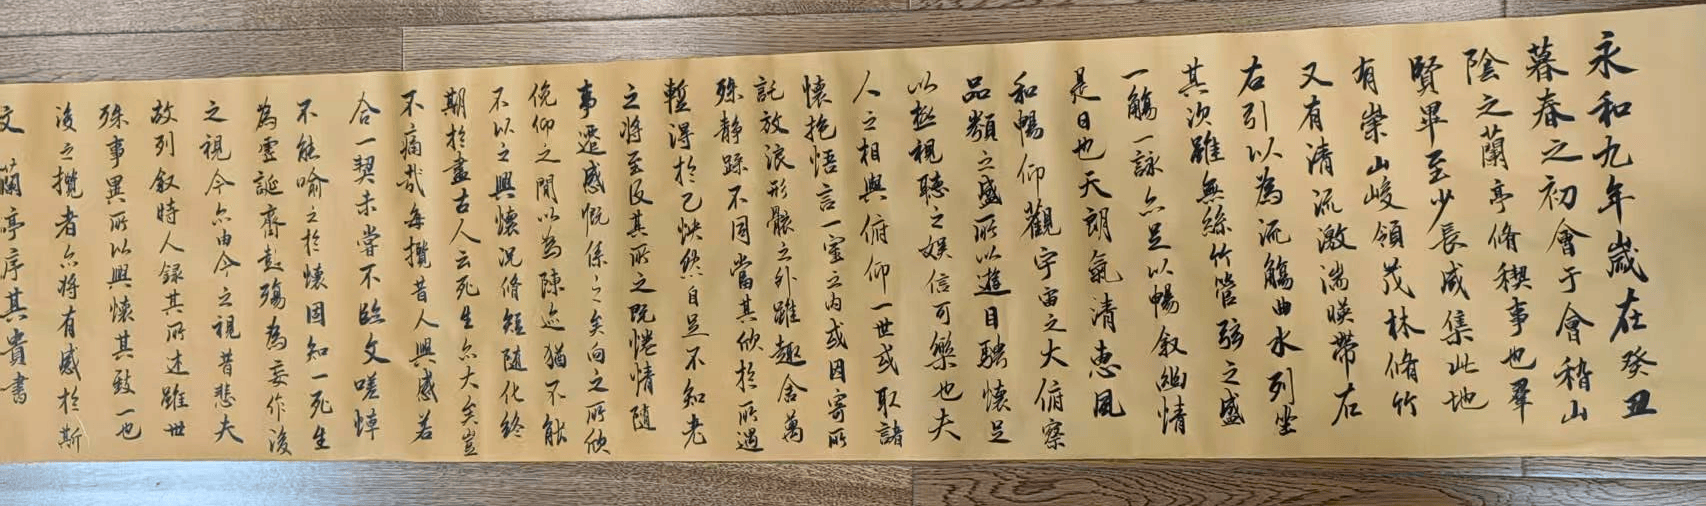 永和九年歲在癸丑
暮春之初會于會稽山
陰之蘭亭脩稧事也羣
賢畢至少長咸集此地
有崇山峻領茂林脩竹
又有清流激湍暎帶左
右引以為流觴曲水列坐
其次雖無絲竹管弦之盛
一觴一詠亦足以暢叙幽情
是日也天朗氣清惠風
和暢仰觀宇宙之大俯察
品類之盛所以遊目騁懷足
以極視聽之娛信可樂也夫
人之相與俯仰一世或取諸
懷抱悟言一室之內或因寄所
託放浪形骸之外雖趣舍萬
殊静躁不同當其欣於所遇
蹔得於己怏然自足不知老
之將至及其所之既惓情隨
事遷感慨係之矣向之所欣
俛仰之閒以為陳迹猶不能
不以之興懷況脩短隨化終
期於盡古人云死生亦大矣豈
不痛哉每攬昔人興感若
合一契未嘗不臨文嗟悼
不能喻之於懷固知一死生
為虛誕齊彭殤為妄作後
之視今亦由今之視昔悲夫
故列叙時人録其所述雖世
殊事異所以興懷其致一也
後之攬者亦將有感於斯
文 蘭亭序其貴書